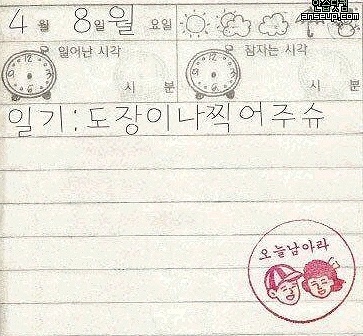 안생닷컴
anseup.com
4월 8일 월요일
일어난 시각 잠자는 시각
시 분 시 분
일기:도장이나찍어주슈
오늘남아라